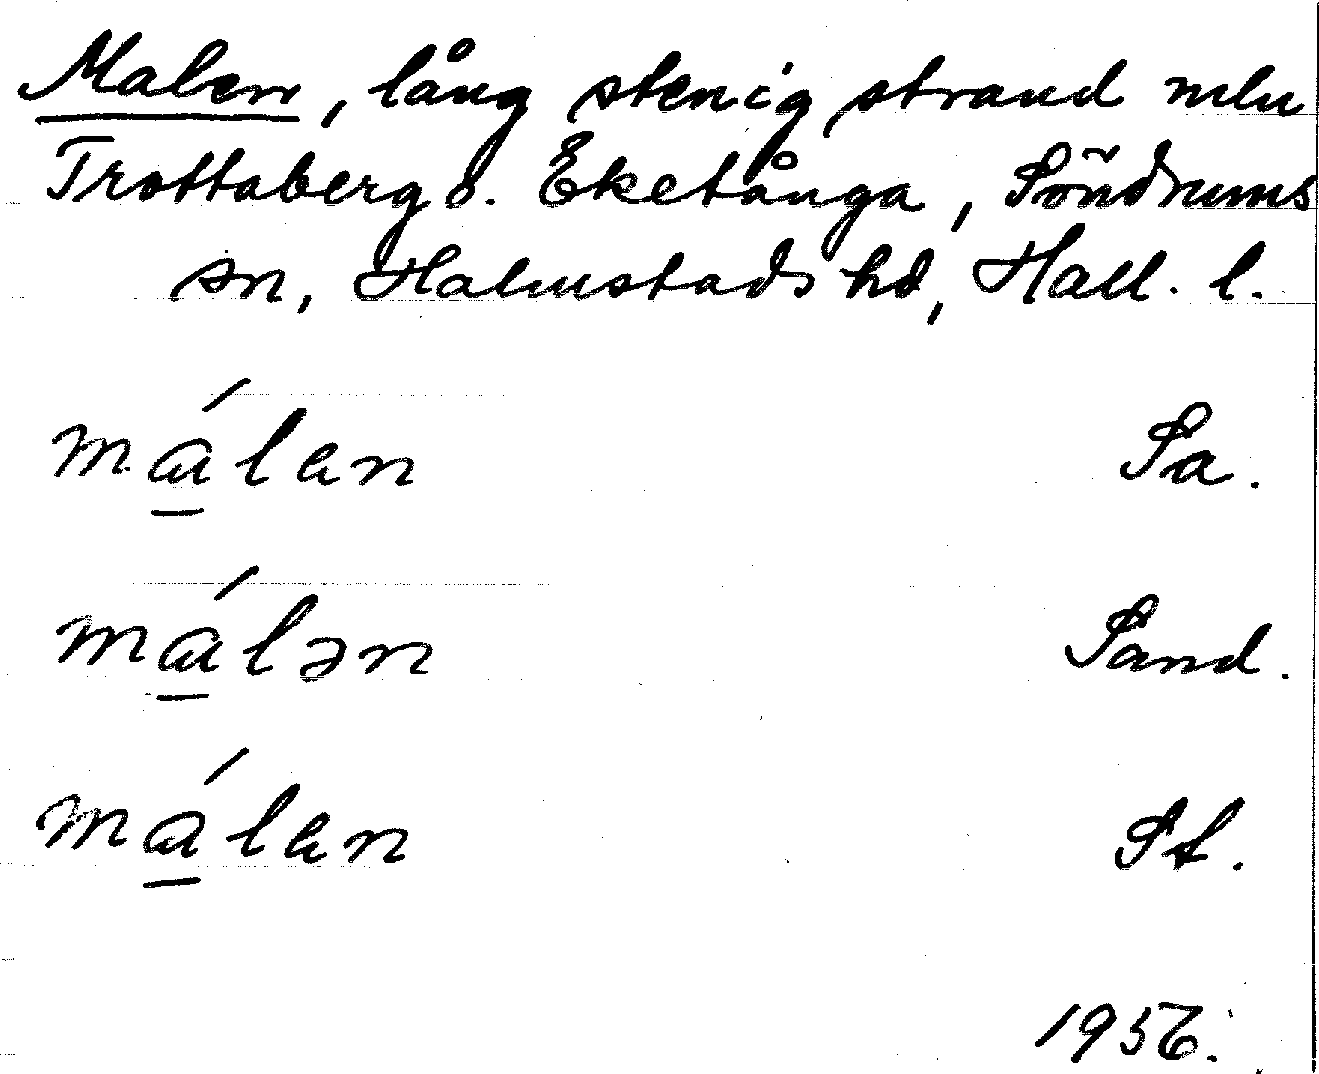 Malen, lång stenig strand mln
Trottaberg o. Eketånga, Söndrums
sn, Halmstads hd, Hall. l.
má̱len Sa.
má̱lən Sand.
má̱len St.
1956.